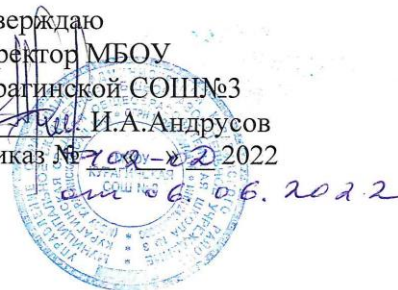 верждаю
ректор МБОУ
рагинской СОШ№3
И.А.Андрусов
иказ № 2022
от 06.06.2022